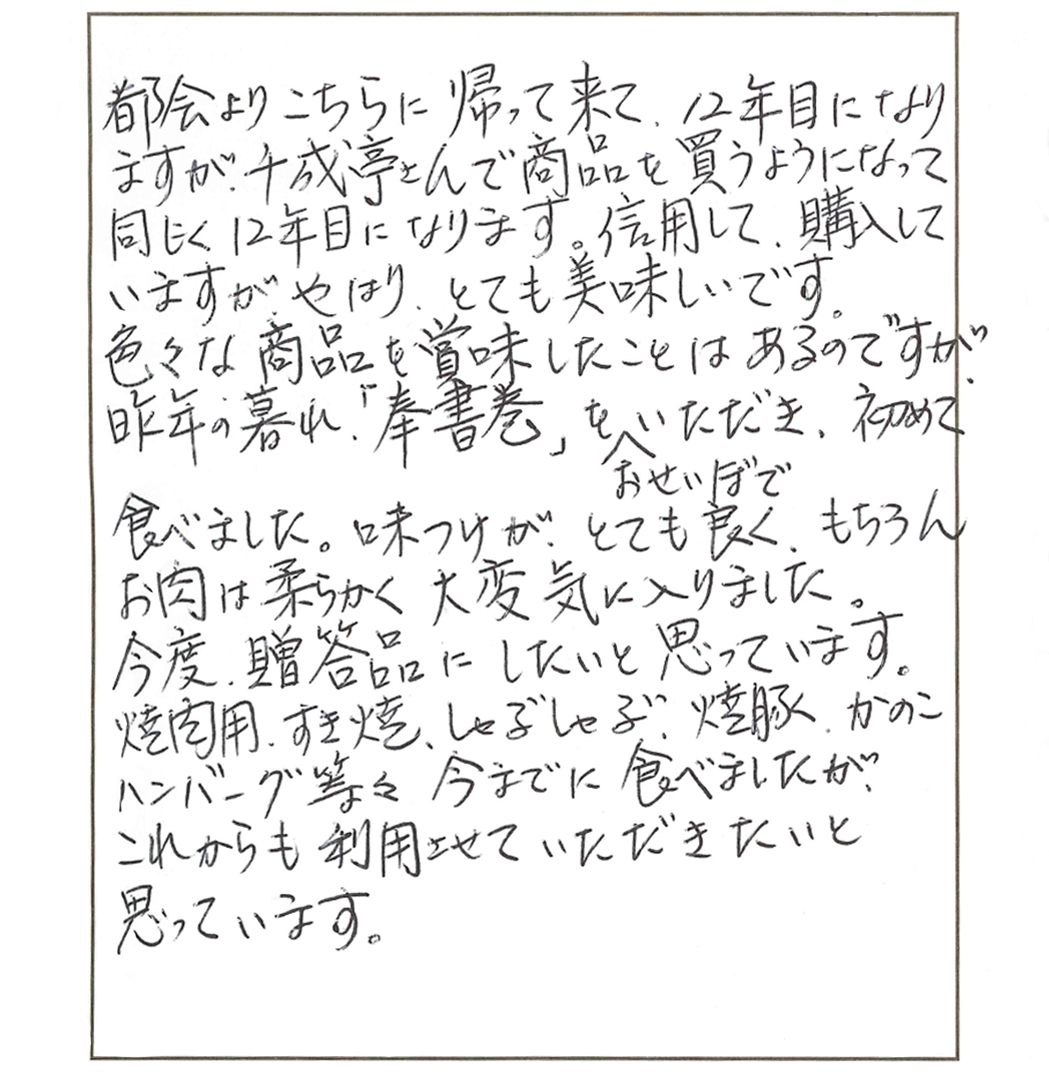 都会よりこちらに帰って来て、12年目になり
ますが、千成亭さんで商品を買うようになって
同じく12年目になります。信用して、購入して
いますが、やはり、とても美味しいです。
色々な商品を賞味したことはあるのですが、
昨年の暮れ、「奉書巻」をいただき、初めて
おせいぼで
食べました。味つけが、とても良く、もちろん
お肉は柔らかく大変気に入りました。
今度、贈答品にしたいと思っています。
焼肉用、すき焼、しゃぶしゃぶ、焼豚、かのこ
ハンバーグ等々今までに食べましたが、
これからも利用させていただきたいと
思っています。